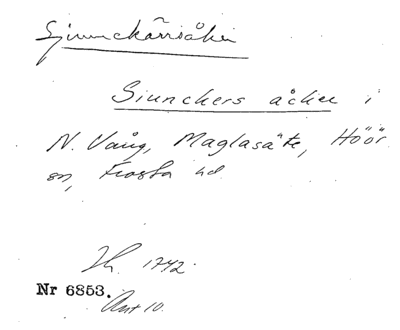 Sjunckersåker
Siunckers åcker i
N. Vång, Maglasäte, Höör
sn, Frosta hd
Jb. 1742
Nr 6853.
Akt 10.